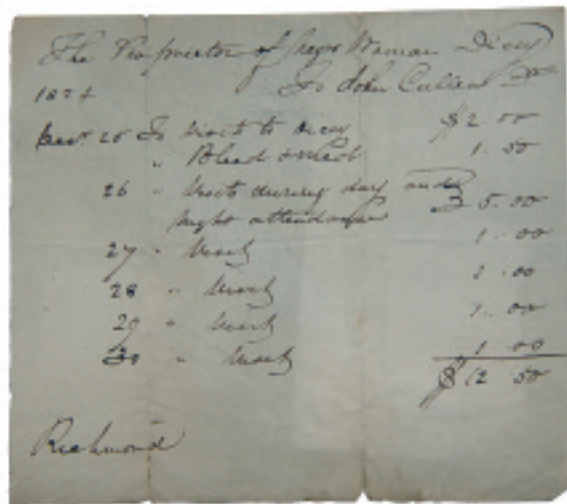 The Proprietor of Negro Woman Dicey
1824 To John Cullen Dr
25 To Visit to Dicey $2.00
" Bleed & 1.50
26 " Visits during day and
night attendance 5.00
27 " Visit 1.00
28 " Visit 1.00
29 " Visit 1.00
30 " Visit 1 00
$12 50
Richmond